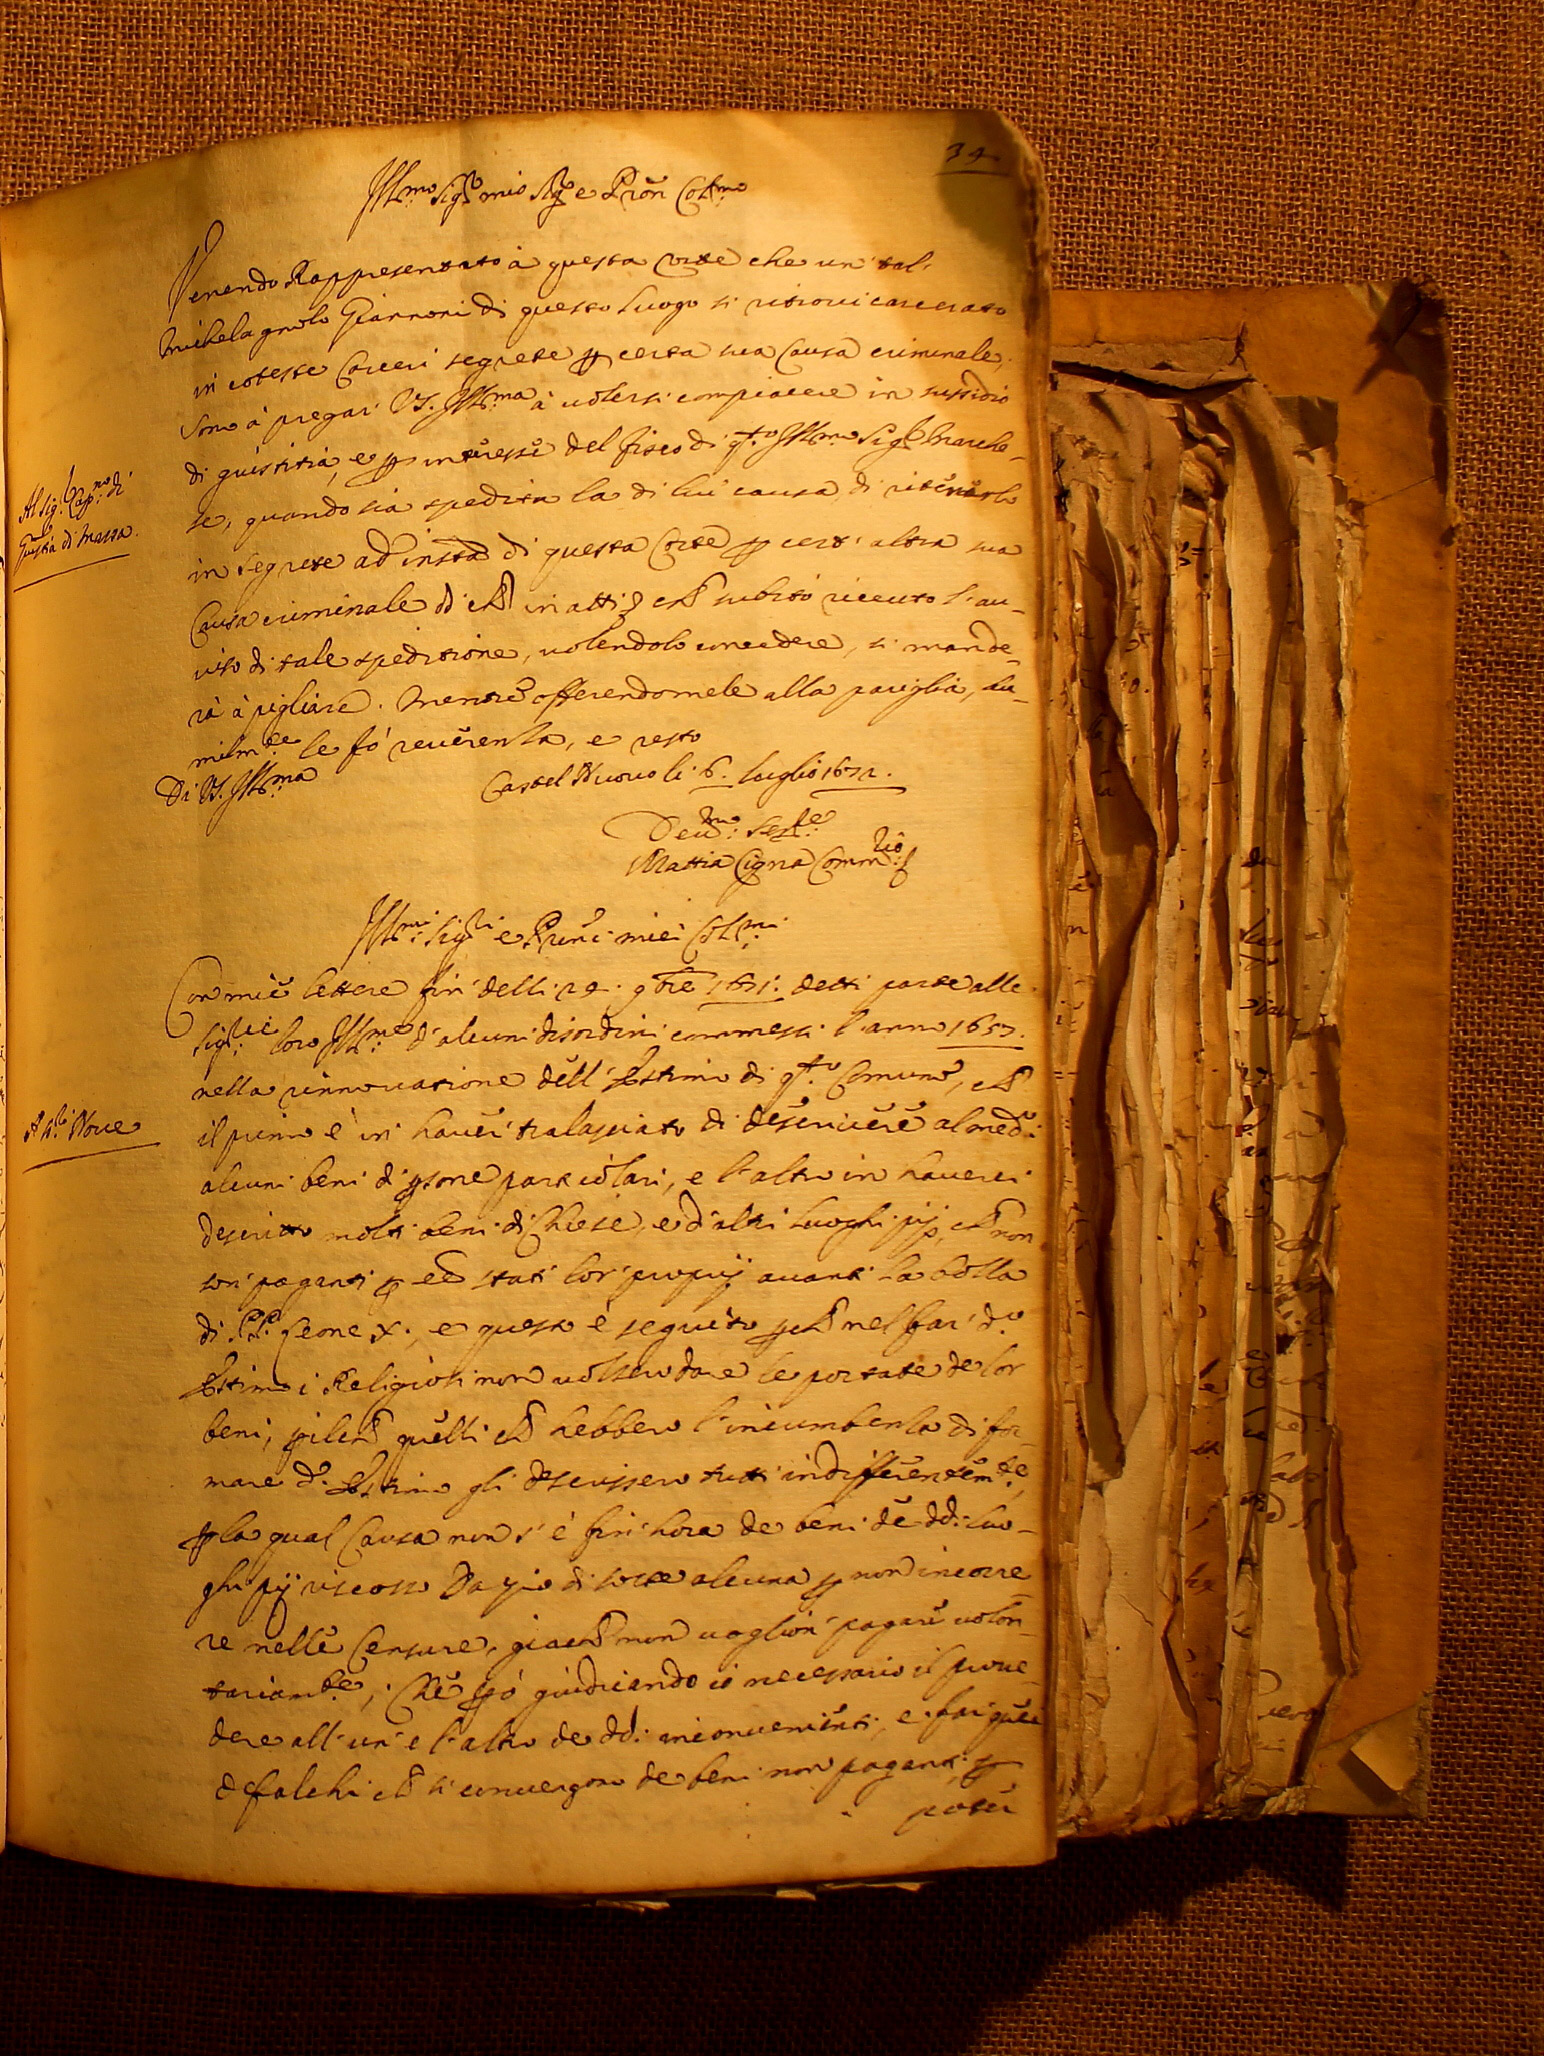 34
Ill.mo Sig.r mio Sig.r e Pron Col.mo
Venendo Rappresentato à questa Corte che un' tal'
Michelagnolo Giannoni di questo luogo si ritrovi carcerato
in coteste Carceri segrete p certa sua Causa criminale,
sono à pregar' VS. Ill.ma à volersi compiacere in sussidio
di giustitia, e p interesse del fisco di q.to Ill.mo Sig.r Marche-
se, quando sia spedita la di lui causa, di ritenerlo
in segrete ad insta di questa Corte p cert' altra sua
Causa criminale di in atti subito riceuto l'au-
uiso di tale speditione, uolendolo concedere, si mande-
rà à pigliare. Mentre offerendomele alla pariglia, hu-
milm.te le fò reuerenza, e resto
Di VS. Ill.ma
Castel Nuouo li 6. luglio 1672.
Deu.mo Ser.re
Mattia Cigna Comm.rio
Al Sig.r Cap.no di
Giust.a di Massa.
Ill.mi Sig.ri e Pruni miei Col.mi
Con mie lettere fin' delli 29. 9bre 1671. detti parte alle
Sig.rie loro Ill.me d'alcuni disordini commessi l'anno 1657.
nella rinnouatione dell'Estimo di q.to Comune, ch
il primo è in hauer' tralasciato di descriuere al med.o
alcuni beni di psone particolari, e l'altro in hauerci
descritto molti beni di Chiese, e d'altri luoghi pij, ch non
son' paganti p eē stati lor' proprij auanti la bolla
di P.P. Leone X., e questo è seguito pch nel far' d.o
Estimo i Religiosi non uolsero dare le portate de lor
beni, pilch quelli ch hebbero l'incumbenza di for-
mare d.o Estimo gli descrissero tutti indifferentem.te,
p la qual Causa non s'è fin' hora de beni de dd. luo-
ghi pij riscosso Dazio di sorte alcuna p non incorre-
re nelle Censure, giach non uoglion' pagare uolon-
tariam.te, Che pò giudicando io necessario il proue-
dere all'un' e l'altro de dd. inconuenienti, e far' quei
defalchi ch si conuengono de beni non paganti, p
poter
Noue